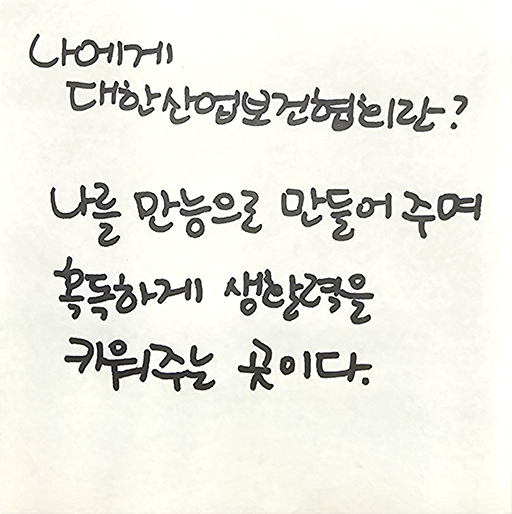 나에게
대한산업보건협회란?
나를 만능으로 만들어주며
혹독하게 생활력을
키워주는 곳이다.